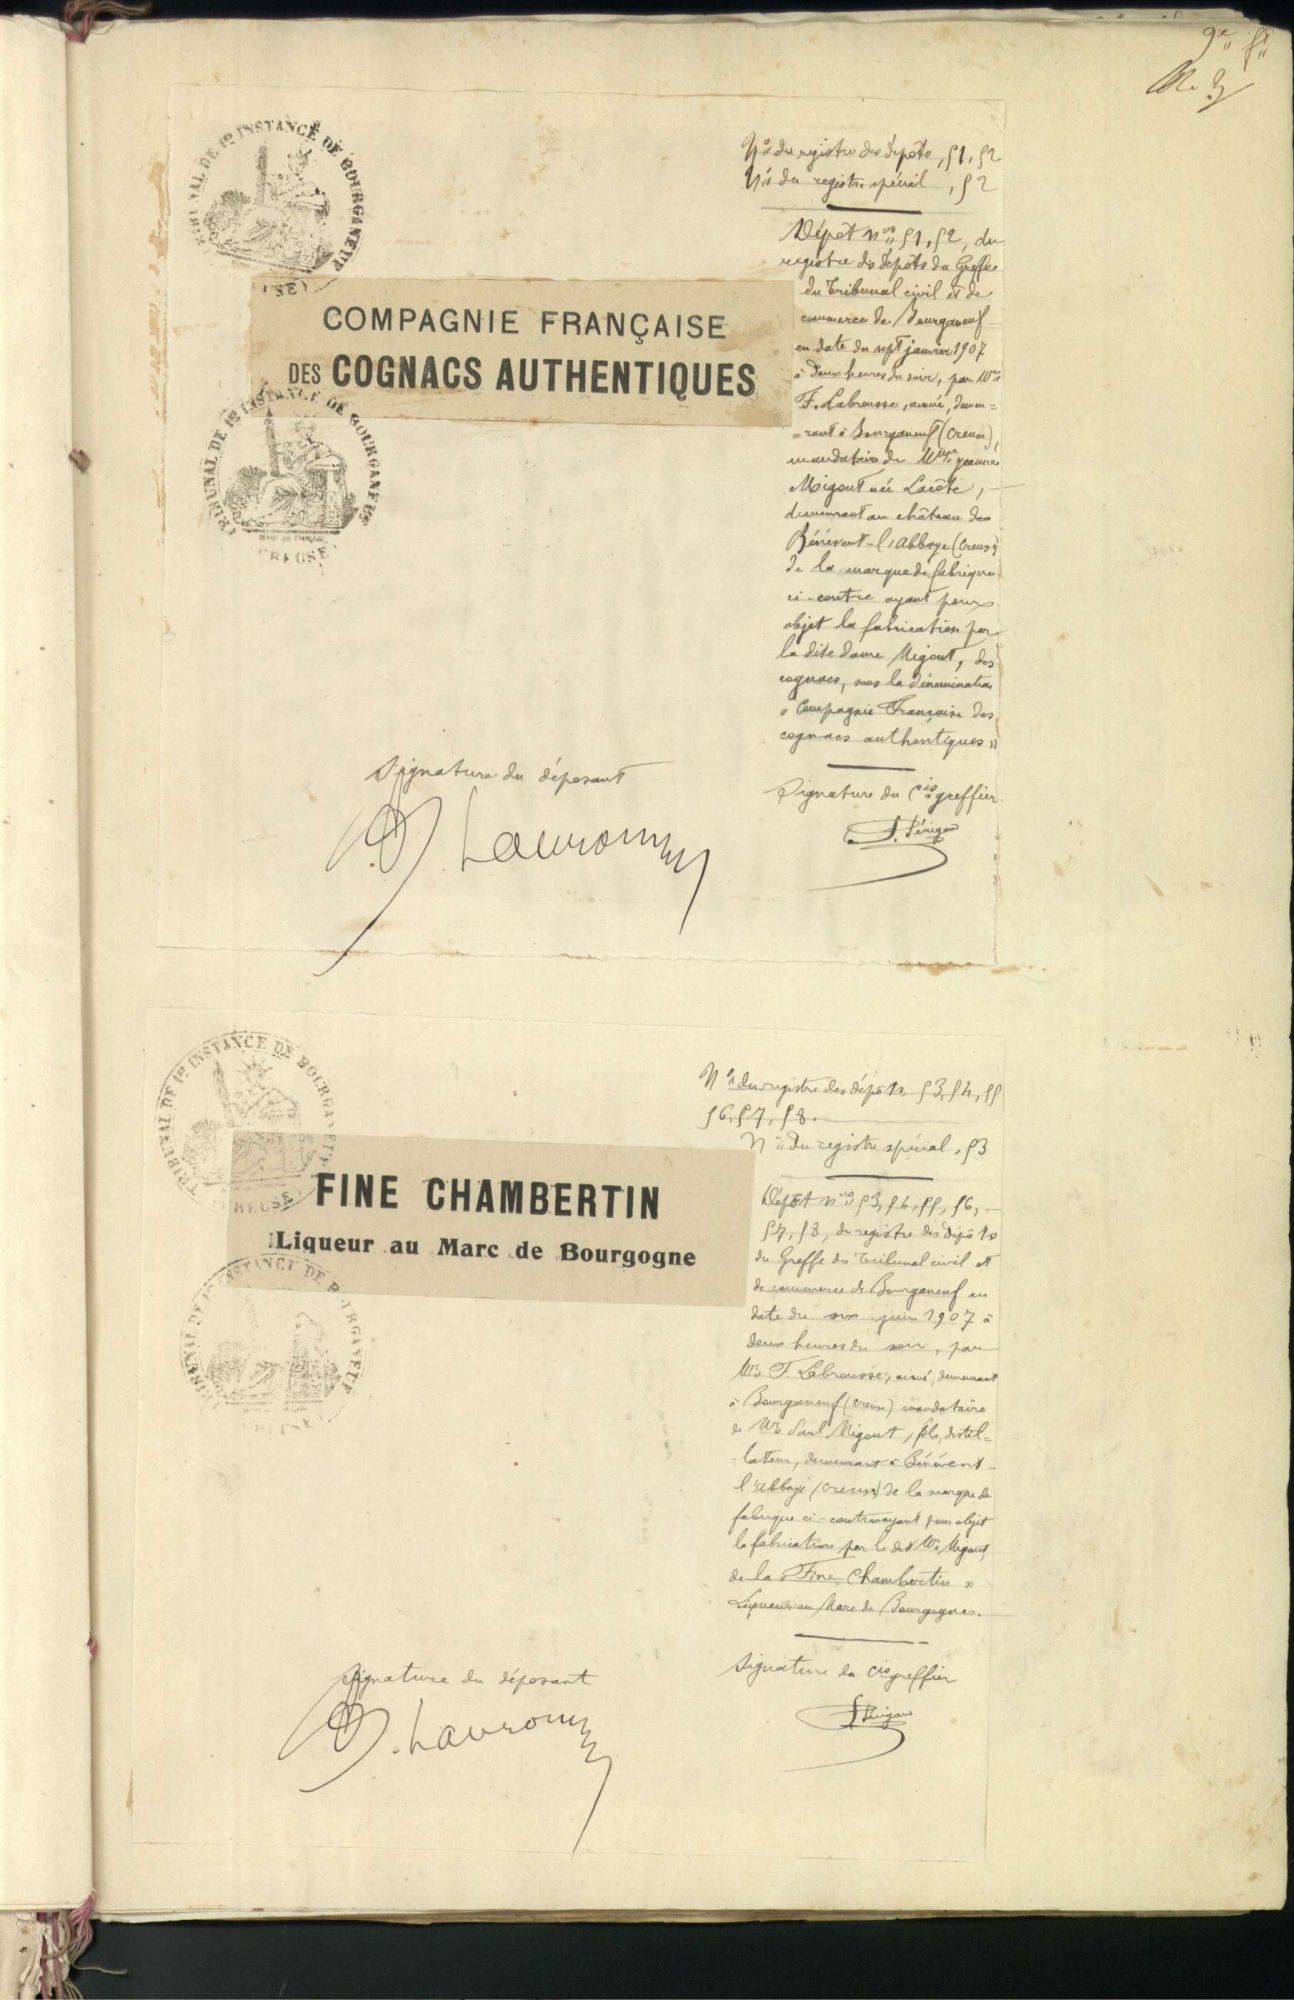 9e ft
TRIBUNAL DE 1re INSTANCE DE BOURGANEUF
(CREUSE)
Nos du registre des dépôts, 51, 52
Nos du registre spécial, 52
Dépôt nos 51, 52, du
registre des dépôts du Greffe
du Tribunal civil et de
commerce de Bourganeuf
en date du sept janvier 1907
à deux heures du soir, par Me
F. Labrousse, avoué, demeu=
=rant à Bourganeuf (Creuse),
mandataire de Mme Jeanne
Migout née Lacôte,
demeurant au château de
Bénévent-l'Abbaye (Creuse)
de la marque de fabrique
ci-contre ayant pour
objet la fabrication par
la dite dame Migout, des
cognacs, sous la dénomination
« Compagnie Française des
cognacs authentiques »
COMPAGNIE FRANÇAISE
DES COGNACS AUTHENTIQUES
TRIBUNAL DE 1re INSTANCE DE BOURGANEUF
(CREUSE)
Signature du déposant
Signature du cis greffier
TRIBUNAL DE 1re INSTANCE DE BOURGANEUF
(CREUSE)
Nos du registre des dépôts, 53, 54, 55
56, 57, 58.
Nos du registre spécial, 53
Dépôt nos 53, 54, 55, 56,
57, 58, du registre des dépôts
du Greffe du Tribunal civil et
de commerce de Bourganeuf en
date du six juin 1907 à
deux heures du soir, par
Me F. Labrousse, avoué, demeurant
à Bourganeuf (Creuse) mandataire
de Mr Paul Migout, fils, distil=
=lateur, demeurant à Bénévent-
l'Abbaye (Creuse) de la marque de
fabrique ci-contre ayant pour objet
la fabrication par le dit Mr Migout,
de la « Fine Chambertin »
Liqueur au Marc de Bourgogne.
FINE CHAMBERTIN
Liqueur au Marc de Bourgogne
TRIBUNAL DE 1re INSTANCE DE BOURGANEUF
(CREUSE)
Signature du déposant
Signature du cis greffier